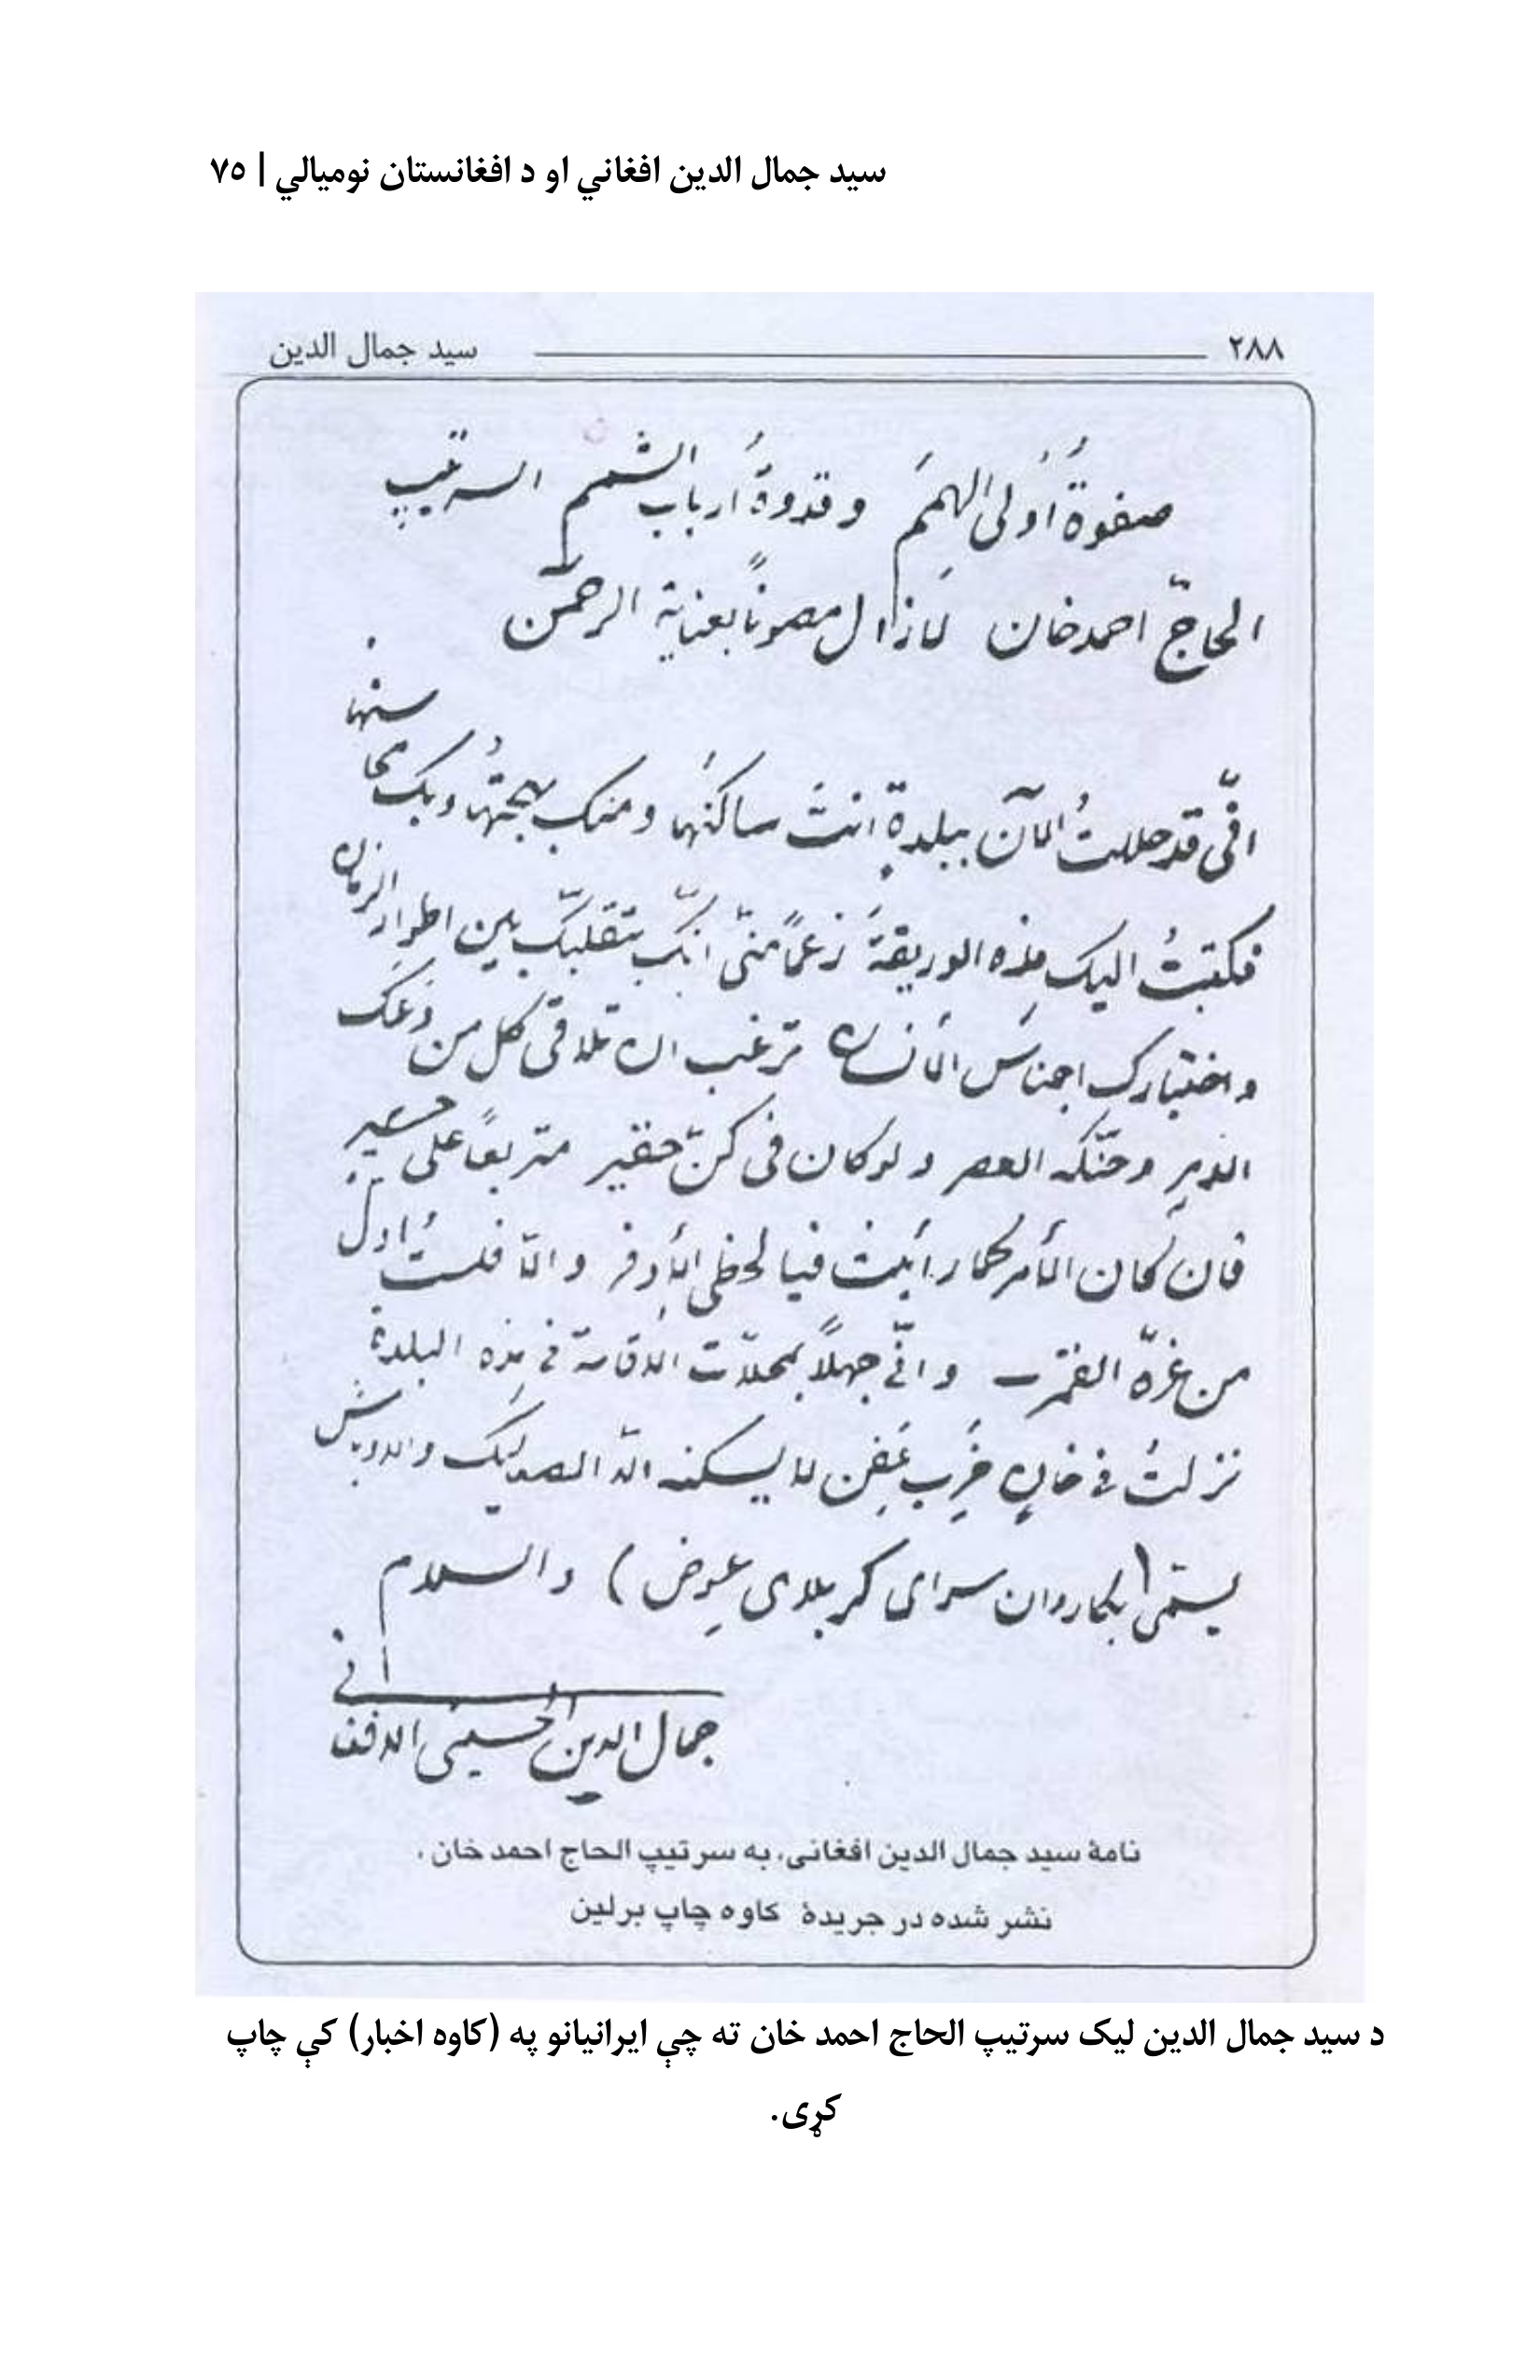 سيد جمال الدين افغاني او د افغانستان نوميالي | ٧٥
٢٨٨ سيد جمال الدين
صفوةُ أُولی الهِمَم وقدوةُ ارباب الشمم السرتيپ
الحاجّ احمدخان لازال مصوناً بعناية الرحمن
انّی قد حللتُ الآن ببلدةٍ انتَ ساكنُها ومنك بهجتُها وبك محاسنها
فكتبتُ اليك هذه الوريقةَ زعماً منّی انّك بتقلبك بين اطوار الزمان
واختبارك اجناسَ الانسان ترغب ان تلاقی كل من
الدهر وحنّكه العصر ولو كان فی كنّ حقير متربعاً علی حصير
فان كان الأمر كما رأيتُ فيا لحظی الأوفر والّا فلستُ اول
من غرّه القمر وانّی جهلاً بمحلات الاقامة فی هذه البلدة
نزلتُ فی خانٍ خَرِب عَفِن لا يسكنه الّا الصعاليك والاوباش
يسمّی (بكاروان سرای كربلای عوض) والسلام
جمال الدين الحسينی الافغانی
نامۀ سيد جمال الدين افغانی، به سرتيپ الحاج احمد خان،
نشر شده در جريدۀ كاوه چاپ برلين
د سيد جمال الدين ليک سرتيپ الحاج احمد خان ته چې ايرانيانو په (کاوه اخبار) کې چاپ
کړی.